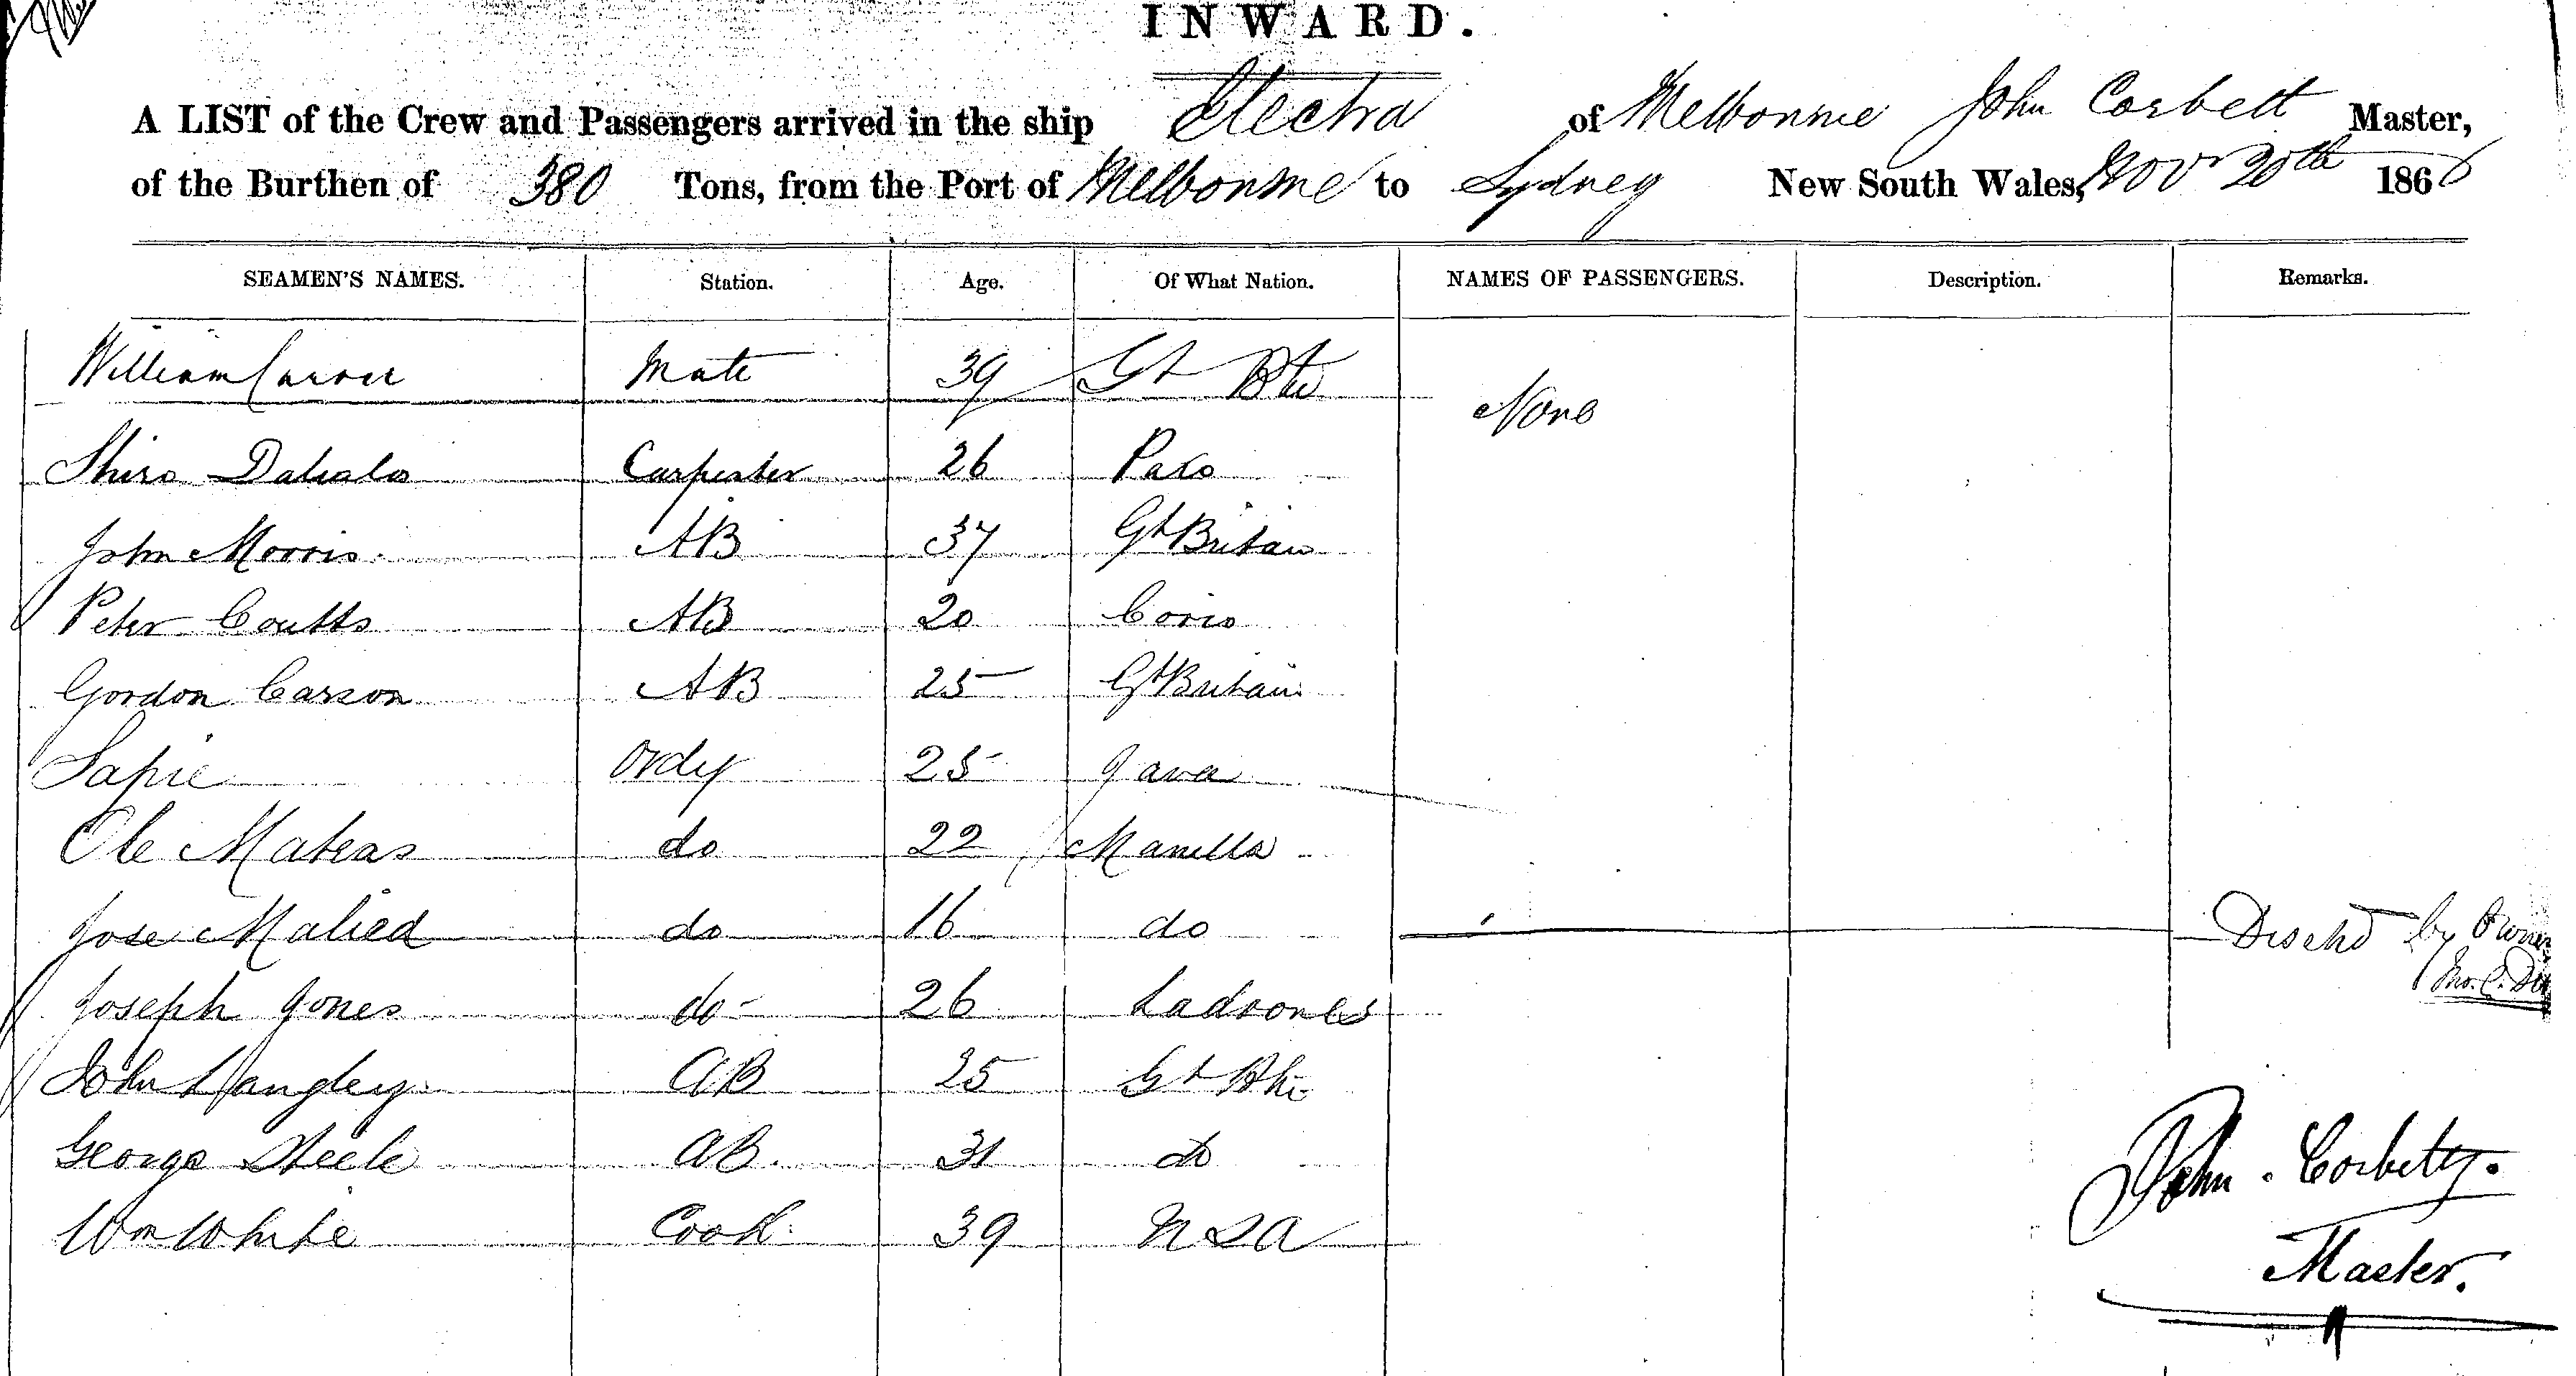 INWARD.
A LIST of the Crew and Passengers arrived in the ship Electra of Melbourne John Corbett Master,
of the Burthen of 380 Tons, from the Port of Melbourne to Sydney New South Wales, Novr 20th 1866
SEAMEN'S NAMES. Station. Age. Of What Nation. NAMES OF PASSENGERS. Description. Remarks.
William Mate 39 Gt None
Carpenter 26
John Morris. AB 37 Gt Britain
Peter Coutts AB 20
Gordon Carson AB 25 Gt Britain
Sapie Ordy 25 Java
Ole Mateas do 22 Manilla
Jose Malied do 16 do Dischd by Owner
Joseph Jones do 26 Ladrones
John Langley AB 25 Gt
George Steele AB. 31 do
Wm White Cook. 39
John. Corbett.
Master.